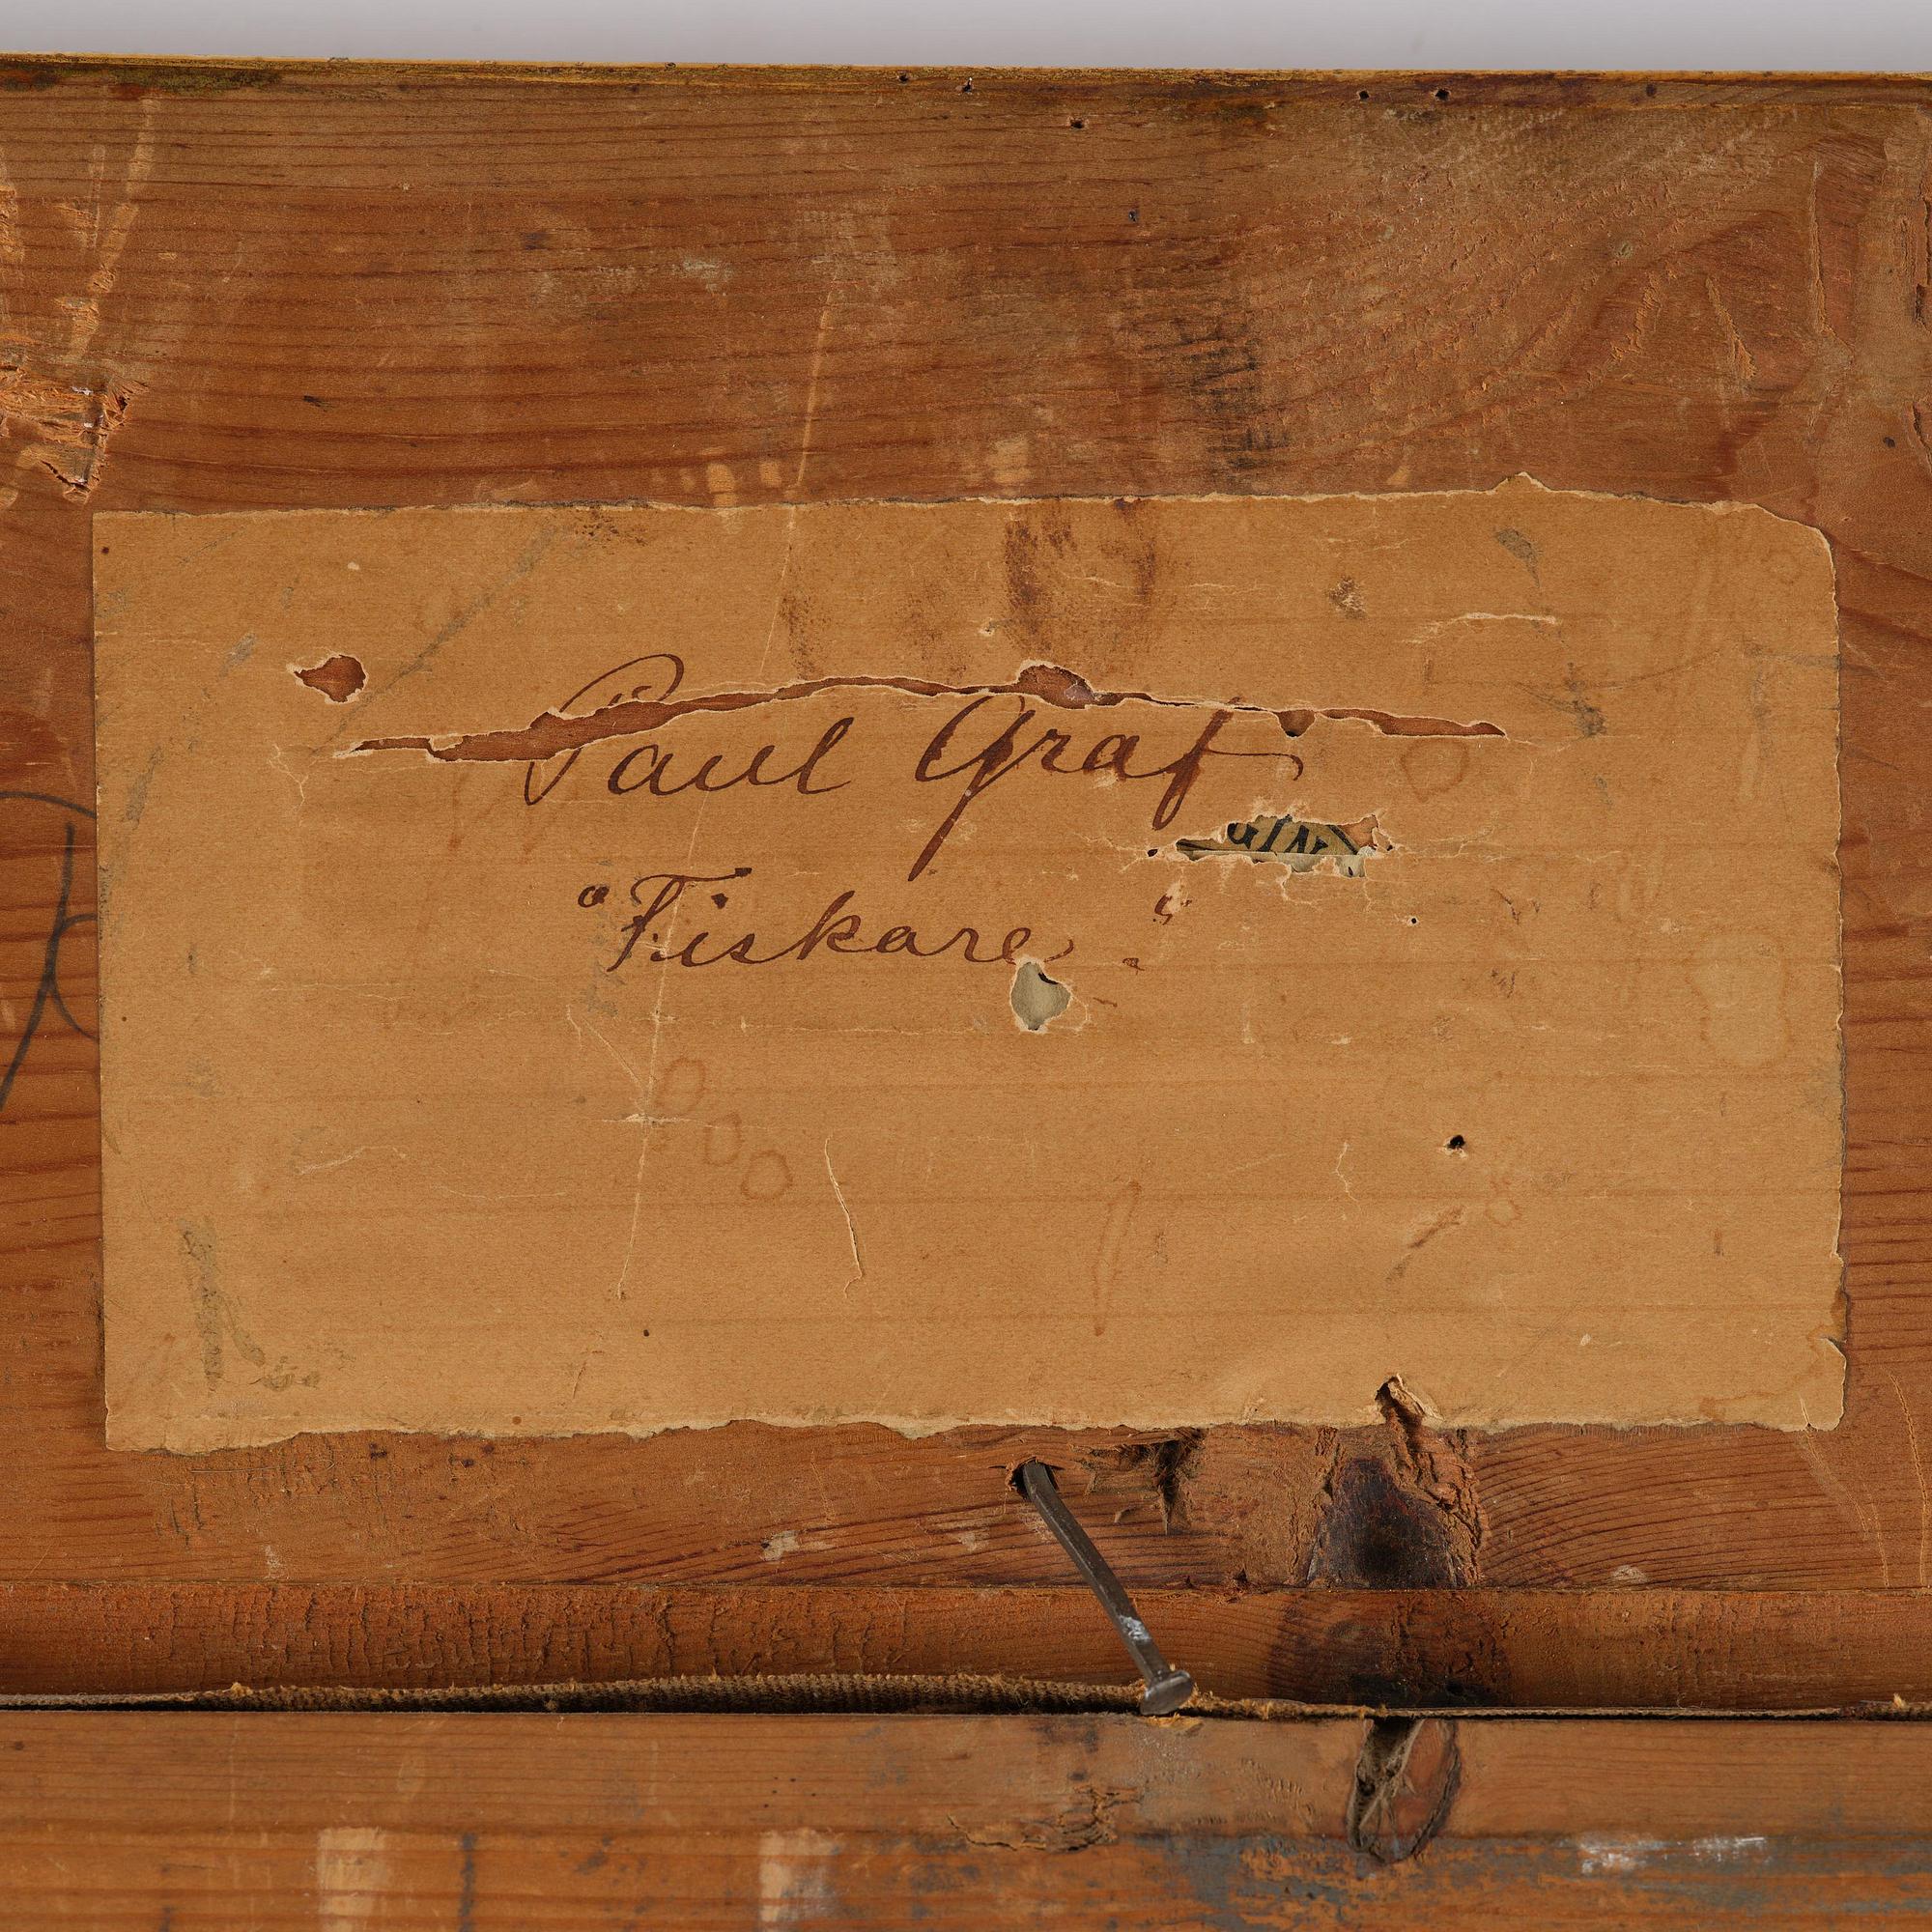 Paul Graf
"Fiskare."